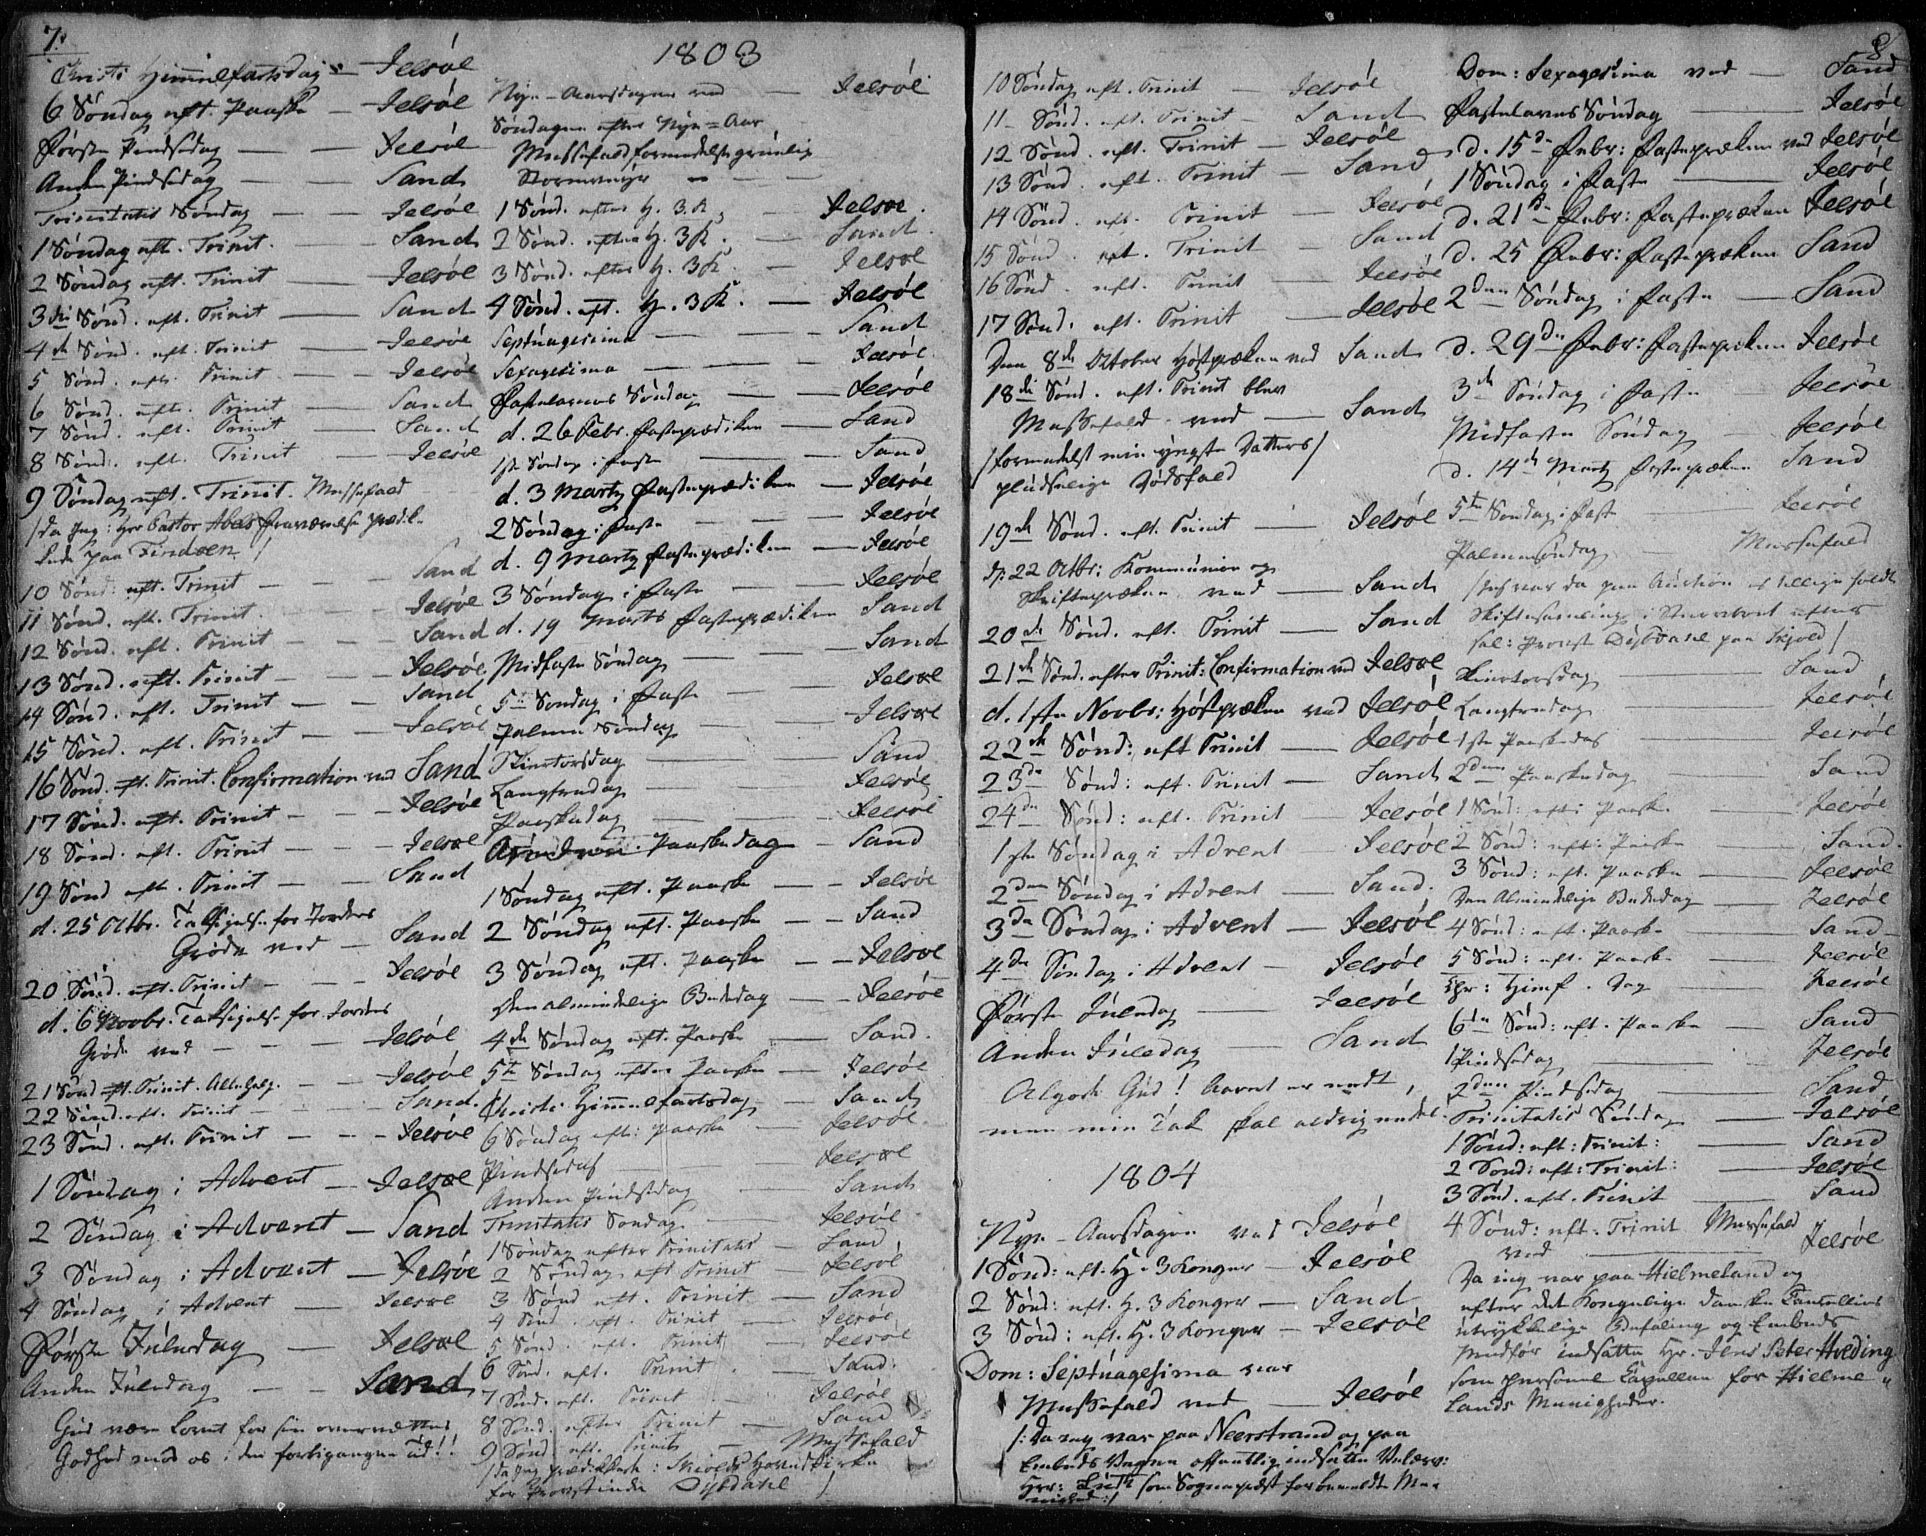 7.
Christi Himmelfartsdag — Jelsöe
6 Söndag eft. Paaske — Jelsöe
Förste Pindsedag — Jelsöe
Anden Pindsedag — Sand
Trinitatis Söndag — Jelsöe
1 Söndag eft. Trinit. — Sand
2 Söndag eft. Trinit — Jelsöe
3die Sönd. eft. Trinit — Sand
4de Sönd. eft. Trinit — Jelsöe
5 Sönd. eft. Trinit — Jelsöe
6 Sönd. eft. Trinit — Sand
7 Sönd. eft. Trinit — Sand
8 Sönd. eft. Trinit — Jelsöe
9 Söndag eft. Trinit. Messefald
/ da jeg: Hr Pastor Abels Fraværelse prædi-
kede paa Findöen /
10 Sönd. eft. Trinit — Sand
11 Sönd. eft. Trinit. Jelsöe
12 Sönd. eft. Trinit — Sand
13 Sönd. eft. Trinit — Jelsöe
14 Sönd. eft. Trinit — Sand
15 Sönd. eft. Trinit — Jelsöe
16 Sönd. eft. Trinit. Confirmation ved Sand
17 Sönd. eft. Trinit — Jelsöe
18 Sönd. eft. Trinit — Jelsöe
19 Sönd eft. Trinit — Sand
d. 25 Octbr. Taksigelse for Jordens
Gröde ved — Sand
20 Sönd. eft. Trinit — Jelsöe
d. 6 Novbr. Taksigelse for Jordens
Gröde ved — Jelsöe
21 Sönd eft. Trinit. Alle Helg. — Jelsöe
22 Sönd. eft. Trinit — Sand.
23 Sönd. eft. Trinit — Jelsöe
1 Söndag i Advent — Jelsöe
2 Söndag i Advent — Sand
3 Söndag i Advent — Jelsöe
4 Söndag i Advent — Jelsöe
Förste Juledag — Jelsöe
Anden Juledag — Sand
Gud være Lovet for sin overvættes
Godhed mod os i den forbigangne Tid!!
1803
Nye-Aarsdagen ved — Jelsöe
Söndagen efter Nye=Aar
Messefald formedelst grüelig
Stormveyr
1 Sönd. efter H. 3. K. Jelsöe.
2 Sönd. efter H. 3 K. — Sand.
3 Sönd. efter H. 3 K. — Jelsöe
4 Sönd. eft. H. 3 K. — Jelsöe
Septuagesima — Sand
Sexagesima — Jelsöe.
Fastelavns Söndag — Jelsöe
d. 26 Febr. Fasteprædiken — Sand
1ste Söndag i Faste — Sand
d. 3 Martz Fasteprædiken — Jelsöe
2 Söndag i Faste — Jelsöe
d. 9 Martz Fasteprædiken — Jelsöe
3 Söndag i Faste — Jelsöe
d. 19 Marts Fasteprædiken Sand
Midfaste Söndag — Sand
5te Söndag i Faste — Jelsöe
Palme Söndag — Jelsöe
Skiertorsdag — Sand
Langfredag — Jelsöe
Paaskedag — Jelsöe
Anden Paaskedag — Sand
1 Söndag eft. Paaske — Jelsöe
2 Söndag eft. Paaske — Sand
3 Söndag eft. Paaske — Jelsöe
Den almindelige Bededag — Jelsöe
4de Söndag eft. Paaske — Sand.
5te Söndag efter Paaske — Jelsöe
Christi Himmelfartsdag — Sand
6 Söndag eft: Paaske — Jelsöe.
Pindsedag — Jelsöe
Anden Pindsedag — Sand
Trinitatis Söndag. — Jelsöe
1 Söndag efter Trinitatis — Sand
2 Söndag eft Trinit — Jelsöe
3 Sönd eft. Trinit — Sand
4 Sönd. eft. Trinit — Jelsöe
5 Sönd. eft. Trinit — Jelsöe
6 Sönd. eft. Trinit — Sand.
7 Sönd. eft. Trinit — Jelsöe
8 Sönd. efter Trinit — Sand
9 Sönd. eft. Trinit — Messefald
/ da jeg prædikkede i Skiolds Hovedkirke
for Provstinde Dybdahl /
8
10 Söndag eft. Trinit — Jelsöe
11 Sönd. eft. Trinit — Sand
12 Sönd. eft. Trinit — Jelsöe
13 Sönd. eft. Trinit — Sand
14 Sönd. eft. Trinit — Jelsöe
15 Sönd. eft. Trinit — Sand
16 Sönd. eft. Trinit — Jelsöe
17 Sönd. eft. Trinit — Jelsöe
Den 8de October Höstpræken ved Sand
18de Sönd. eft. Trinit blev
Messefald ved — Sand
/ formedelst min yngste Datters /
pludselige Dödsfald
19de Sönd. eft. Trinit — Jelsöe
d. 22 Octbr: Kommunion og
Skriftepræken ved — Sand
20de Sönd. eft. Trinit — Sand
21de Sönd. efter Trinit: Confirmation ved Jelsöe
d. 1ste Novbr: Höstpræken ved Jelsöe
22de Sönd: eft Trinit — Jelsöe
23de Sönd: eft. Trinit — Sand
24de Sönd: eft. Trinit Jelsöe
1ste Söndag i Advent — Jelsöe
2den Söndag i Advent — Sand.
3de Söndag i Advent — Jelsöe
4de Söndag i Advent — Jelsöe
Förste Juledag — Jelsöe
Anden Juledag — Sand
Algode Gud! Aaret er endt,
men min Tak skal aldrig endes.
1804
Nye-Aarsdagen ved Jelsöe
1 Sönd: eft. H. 3 Konger — Jelsöe
2 Sönd: eft. H. 3 Konger — Sand
3 Sönd: eft. H. 3 Konger — Jelsöe
Dom: Septuagesima var
Messefald ved — Jelsöe
/: Da jeg var paa Neerstrand og paa
Embeds Vegne offentlig indsatte Velærv:
Herr: Lund som Sognepræst for bemeldte Me-
nighed :/
Dom: Sexagesima ved — Sand
Fastelavns Söndag — Jelsöe
d. 15de Febr: Fastepræken ved Jelsöe
1 Söndag i Faste — Jelsöe
d. 21de Febr: Fastepræken Jelsöe
d. 25 Febr: Fastepræken Sand
2den Söndag i Faste — Sand
d. 29de Febr: Fastepræken Jelsöe
3de Söndag i Faste — Jelsöe
Midfaste Söndag — Jelsöe
d. 14de Martz Fastepræken Sand
5te Söndag i Faste Jelsöe
Palmesöndag — Messefald
/ Jeg var da paa Auction
Skiftesamling i efter
sal: Provst Dybdahl paa Skiold /
Skiertorsdag — Sand
Langfredag Jelsöe
1ste Paaskedag — Jelsöe
2den Paaskedag — Sand
1 Sönd: eft: Paaske — Jelsöe
2 Sönd: eft: Paaske — Sand.
3 Sönd: eft. Paaske — Jelsöe
Den Almindelige Bededag — Jelsöe
4 Sönd: eft. Paaske — Sand
5 Sönd: eft. Paaske — Jelsöe
Chr: Himf. Dag — Jelsöe
6te Sönd: eft. Paaske — Sand
1 Pindsedag — Jelsöe
2den Pindsedag — Sand
Trinitatis Söndag — Jelsöe
1 Sönd: eft: Trinit: — Sand
2 Sönd: eft: Trinit: — Jelsöe
3 Sönd. eft. Trinit — Sand
4 Sönd: eft. Trinit Messefald
ved — Jelsöe
Da jeg var paa Hielmeland og
efter det Kongelige danske Cancellies
udtrykkelige Befaling og Embeds
Medför indsatte Hr. Jens Peter Hveding
som personel Capellan for Hielme-
lands Menigheder.